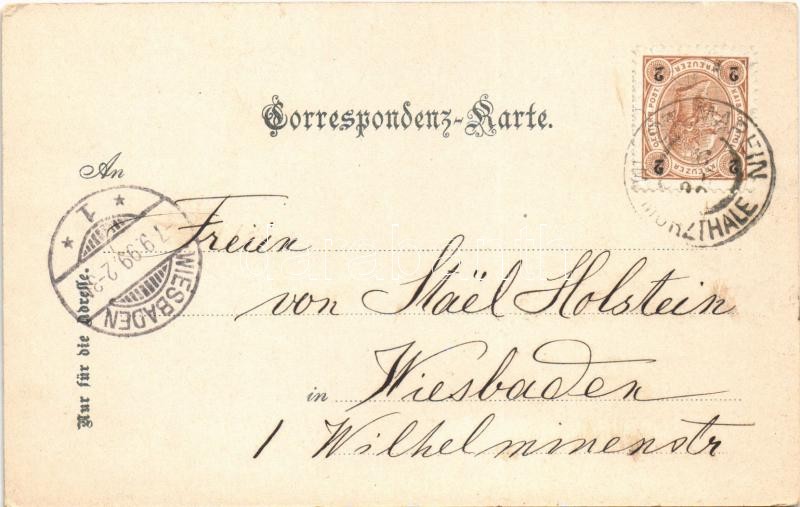 Correspondenz-Karte.
An
Freien
von Staël Holstein
in Wiesbaden
1 Wilhelminenstr
Nur für die Adresse.
WIESBADEN
1
7.9.99. 2-3
MÜRZTHALE
2 KREUZER 2
2 KREUZER 2